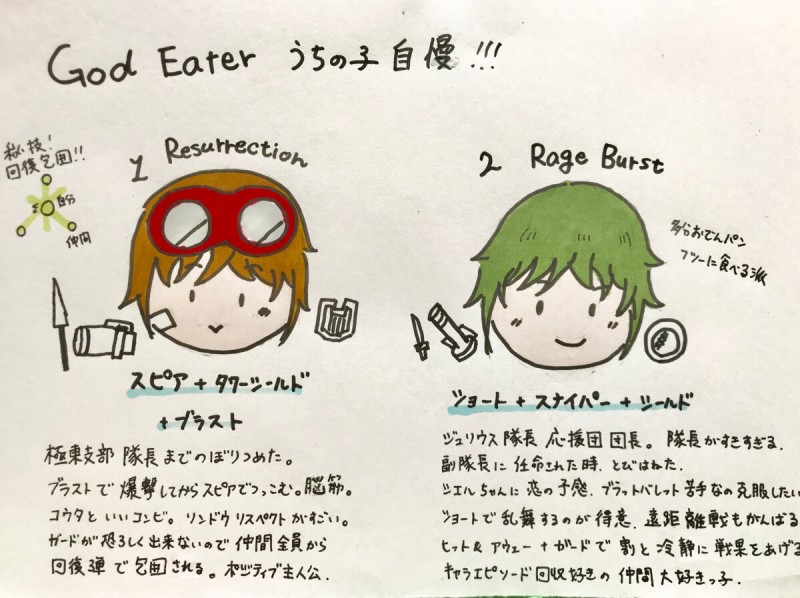 God Eater うちの子自慢!!!
秘技!
回復包囲!!
自分
仲間
1 Resurrection
スピア + タワーシールド
+ ブラスト
極東支部 隊長までのぼりつめた。
ブラストで爆撃してからスピアでつっこむ。脳筋。
コウタといいコンビ。リンドウリスペクトがすごい。
ガードが恐ろしく出来ないので仲間全員から
回復弾で包囲される。ポジティブ主人公.
2 Rage Burst
多分おでんパン
フツーに食べる派
ショート + スナイパー + シールド
ジュリウス隊長 応援団団長。隊長がすきすぎる.
副隊長に任命された時、とびはねた.
シエルちゃんに恋の予感、ブラッドバレット苦手なの克服したい
ショートで乱舞するのが得意、遠距離戦もがんばる
ヒット&アウェー+ガードで割と冷静に戦果をあげる
キャラエピソード回収好きの仲間大好きっ子.